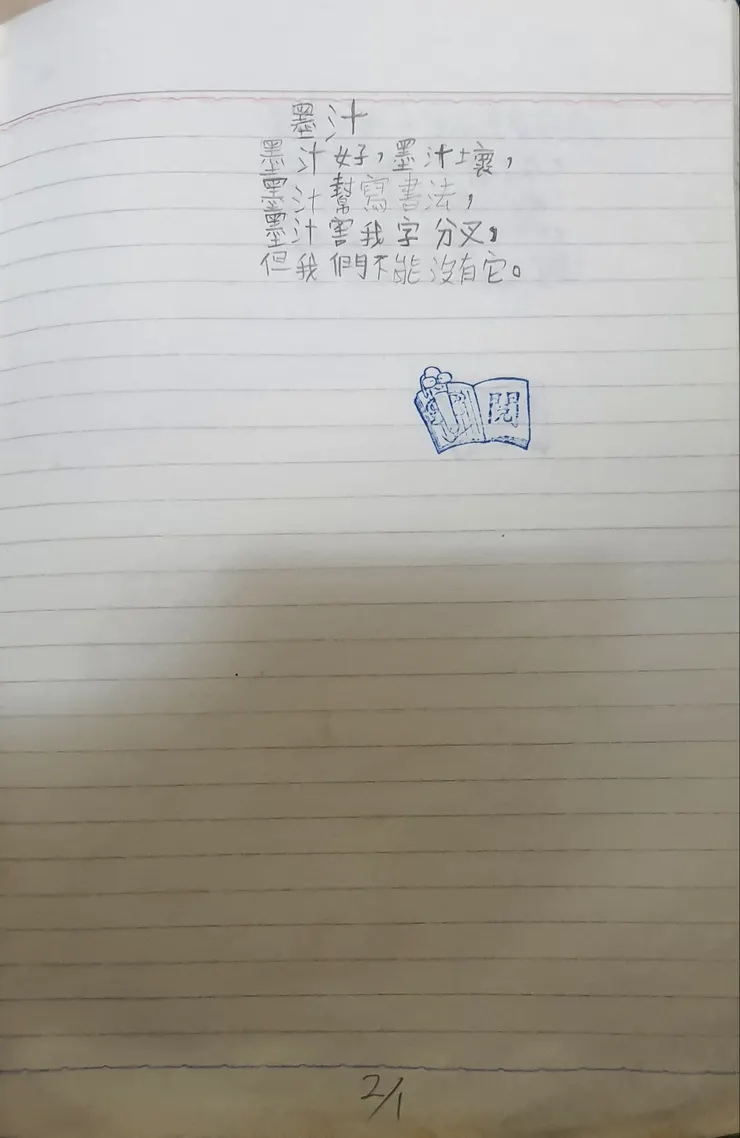 墨汁
墨汁好,墨汁壞,
墨汁幫寫書法,
墨汁害我字分叉,
但我們不能沒有它。
閱
2/1